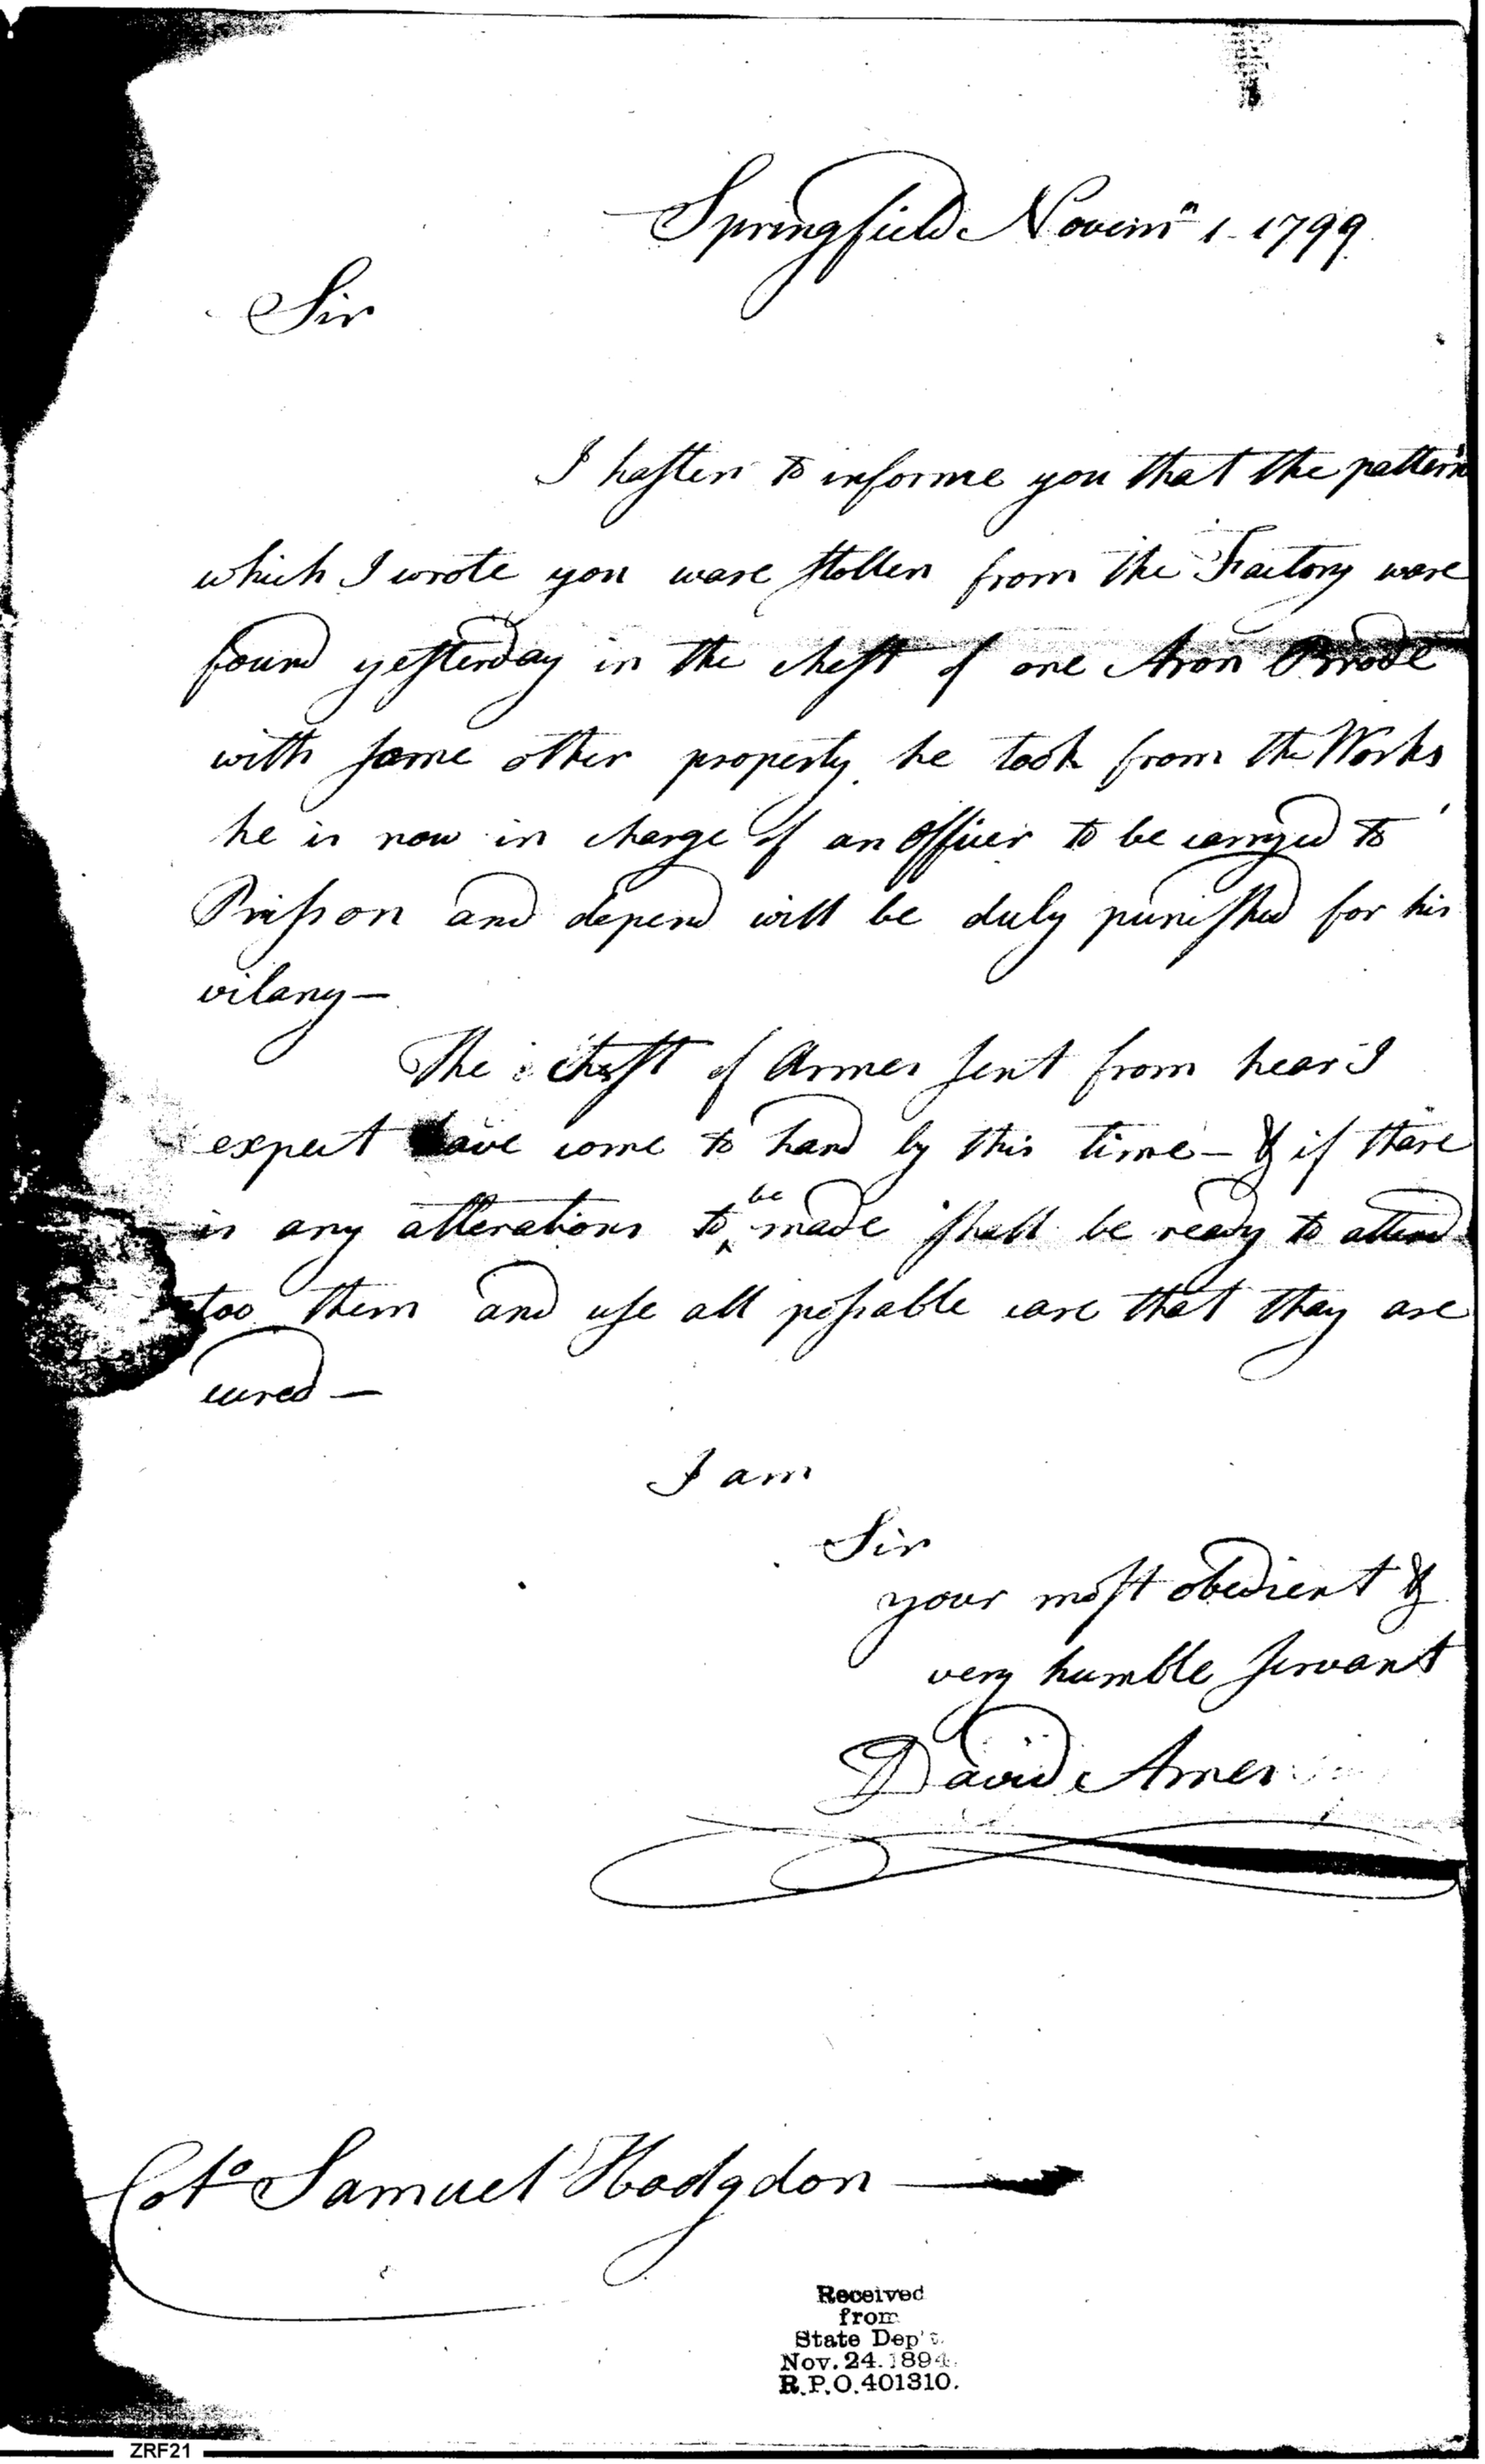 Springfield Novemr 1 - 1799
Sir
I hasten to informe you that the pattern
which I wrote you ware stollen from the Factory ware
found yesterday in the chest of one Aron Brode
with some other property he took from the Works
he is now in charge of an officer to be carryed to
Prisson and depend will be duly punished for his
vilany —
The chest of Armes sent from hear I
expect have come to hand by this time — & if thare
is any alterations to be made shall be ready to attend
too them and use all possable care that thay are
cured —
I am
Sir
your most obedient &
very humble servant
David Ames
Colo Samuel Hodgdon —
Received
from
State Dep't.
Nov. 24. 1894.
R.P.O. 401310.
ZRF21